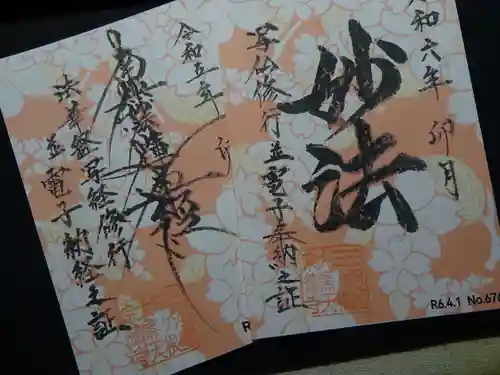 令和六年 卯月
妙法
写仏修行並電子奉納之証
R6.4.1 No.676
令和五年
南無妙法蓮華経
法華経写経修行
並電子納経之証
R